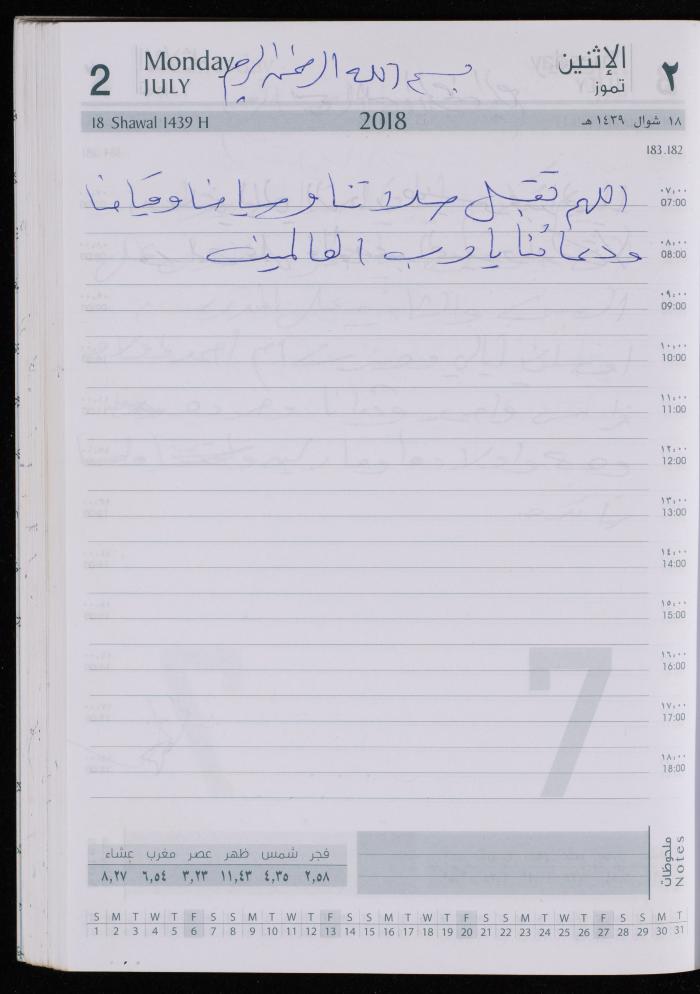 2 Monday JULY بسم الله الرحمن الرحيم الإثنين تموز ٢
18 Shawal 1439 H 2018 ١٨ شوال ١٤٣٩ هـ
183.182
اللهم تقبل صلاتنا وصيامنا وقيامنا
٠٧:٠٠
07:00
ودعائنا يا رب العالمين
٠٨:٠٠
08:00
٠٩:٠٠
09:00
١٠:٠٠
10:00
١١:٠٠
11:00
١٢:٠٠
12:00
١٣:٠٠
13:00
١٤:٠٠
14:00
١٥:٠٠
15:00
١٦:٠٠
16:00
7
١٧:٠٠
17:00
١٨:٠٠
18:00
ملحوظات
Notes
فجر شمس ظهر عصر مغرب عشاء
٢,٥٨ ٤,٣٥ ١١,٤٣ ٣,٢٣ ٦,٥٤ ٨,٢٧
S M T W T F S S M T W T F S S M T W T F S S M T W T F S S M T
1 2 3 4 5 6 7 8 9 10 11 12 13 14 15 16 17 18 19 20 21 22 23 24 25 26 27 28 29 30 31